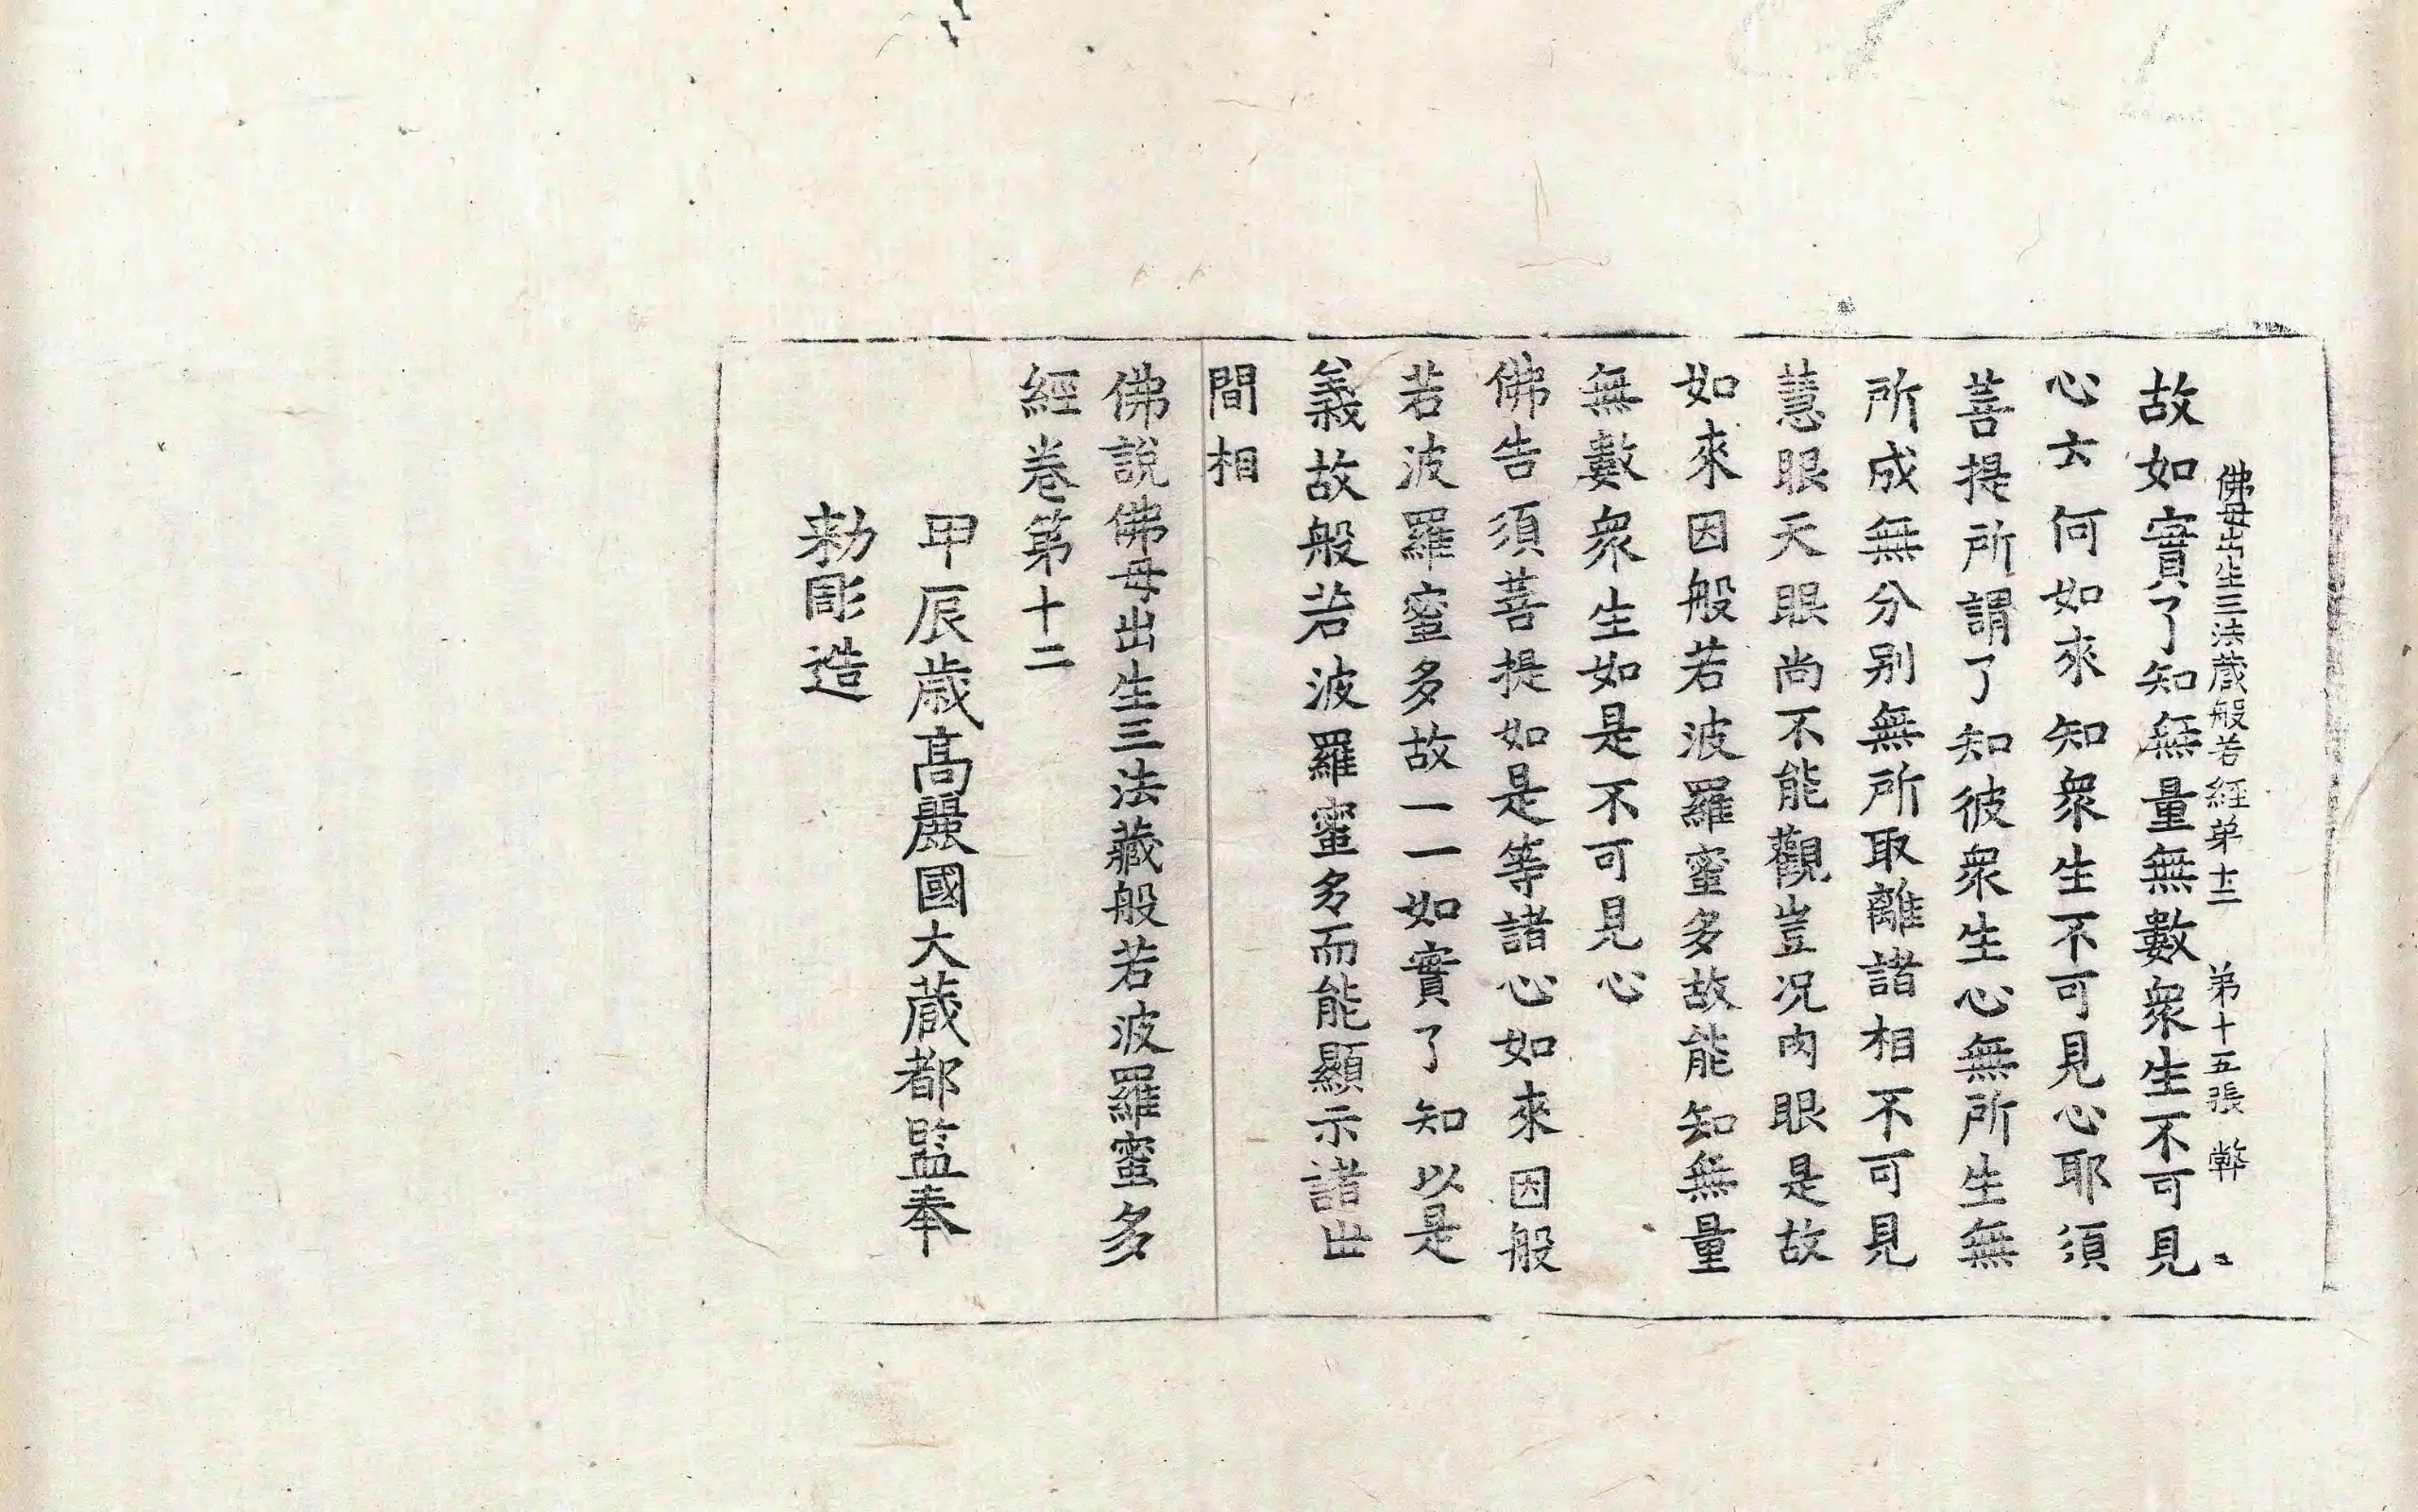 佛母出生三法藏般若經第十二 第十五張 弊
故如實了知無量無數衆生不可見
心云何如來知衆生不可見心耶須
菩提所謂了知彼衆生心無所生無
所成無分別無所取離諸相不可見
慧眼天眼尚不能觀豈況肉眼是故
如來因般若波羅蜜多故能知無量
無數衆生如是不可見心
佛告須菩提如是等諸心如來因般
若波羅蜜多故一一如實了知以是
義故般若波羅蜜多而能顯示諸世
間相
佛說佛母出生三法藏般若波羅蜜多
經卷第十二
甲辰歲高麗國大藏都監奉
勑彫造